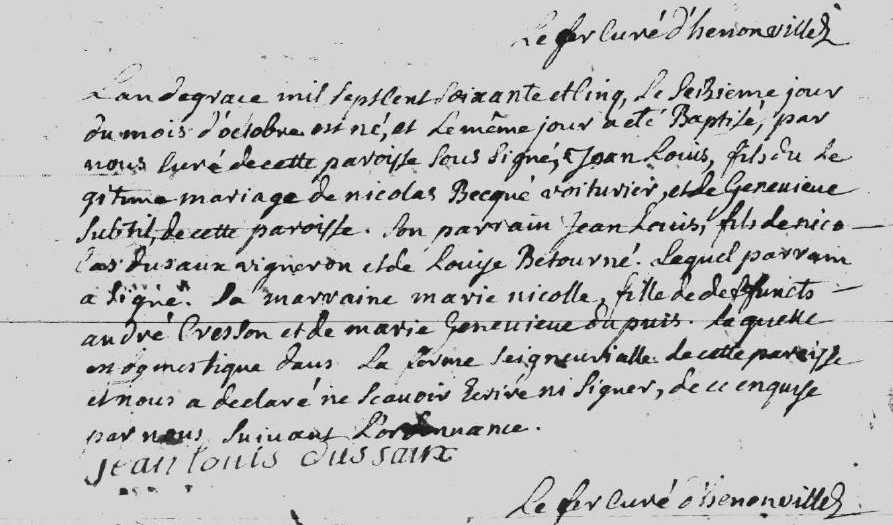 Le fer Curé d'henonville
Lan de grace mil sept Cent Soixante et Cinq, Le Seizieme jour
du mois d'octobre est né, et Le même jour a eté Baptisé, par
nous Curé de cette paroisse Sous Signé, Jean Louis, fils du Le
gitime mariage de nicolas Becqué voiturier, et de Genevieve
Subtil, de cette paroisse. Son parrain Jean Louis, fils de nico
las dusaux vigneron et de Louise Betourné. Lequel parrain
a Signé. Sa marraine marie nicolle, fille de deffuncts
andré Cresson et de marie Genevieve dupuis. Laquelle
domestique dans La ferme Seigneurialle de cette paroisse
et nous a declaré ne Scavoir Ecrire ni Signer, de ce enquise
par nous Suivant L'ordonnance.
jean louis dussaux
Le fer Curé d'henonville